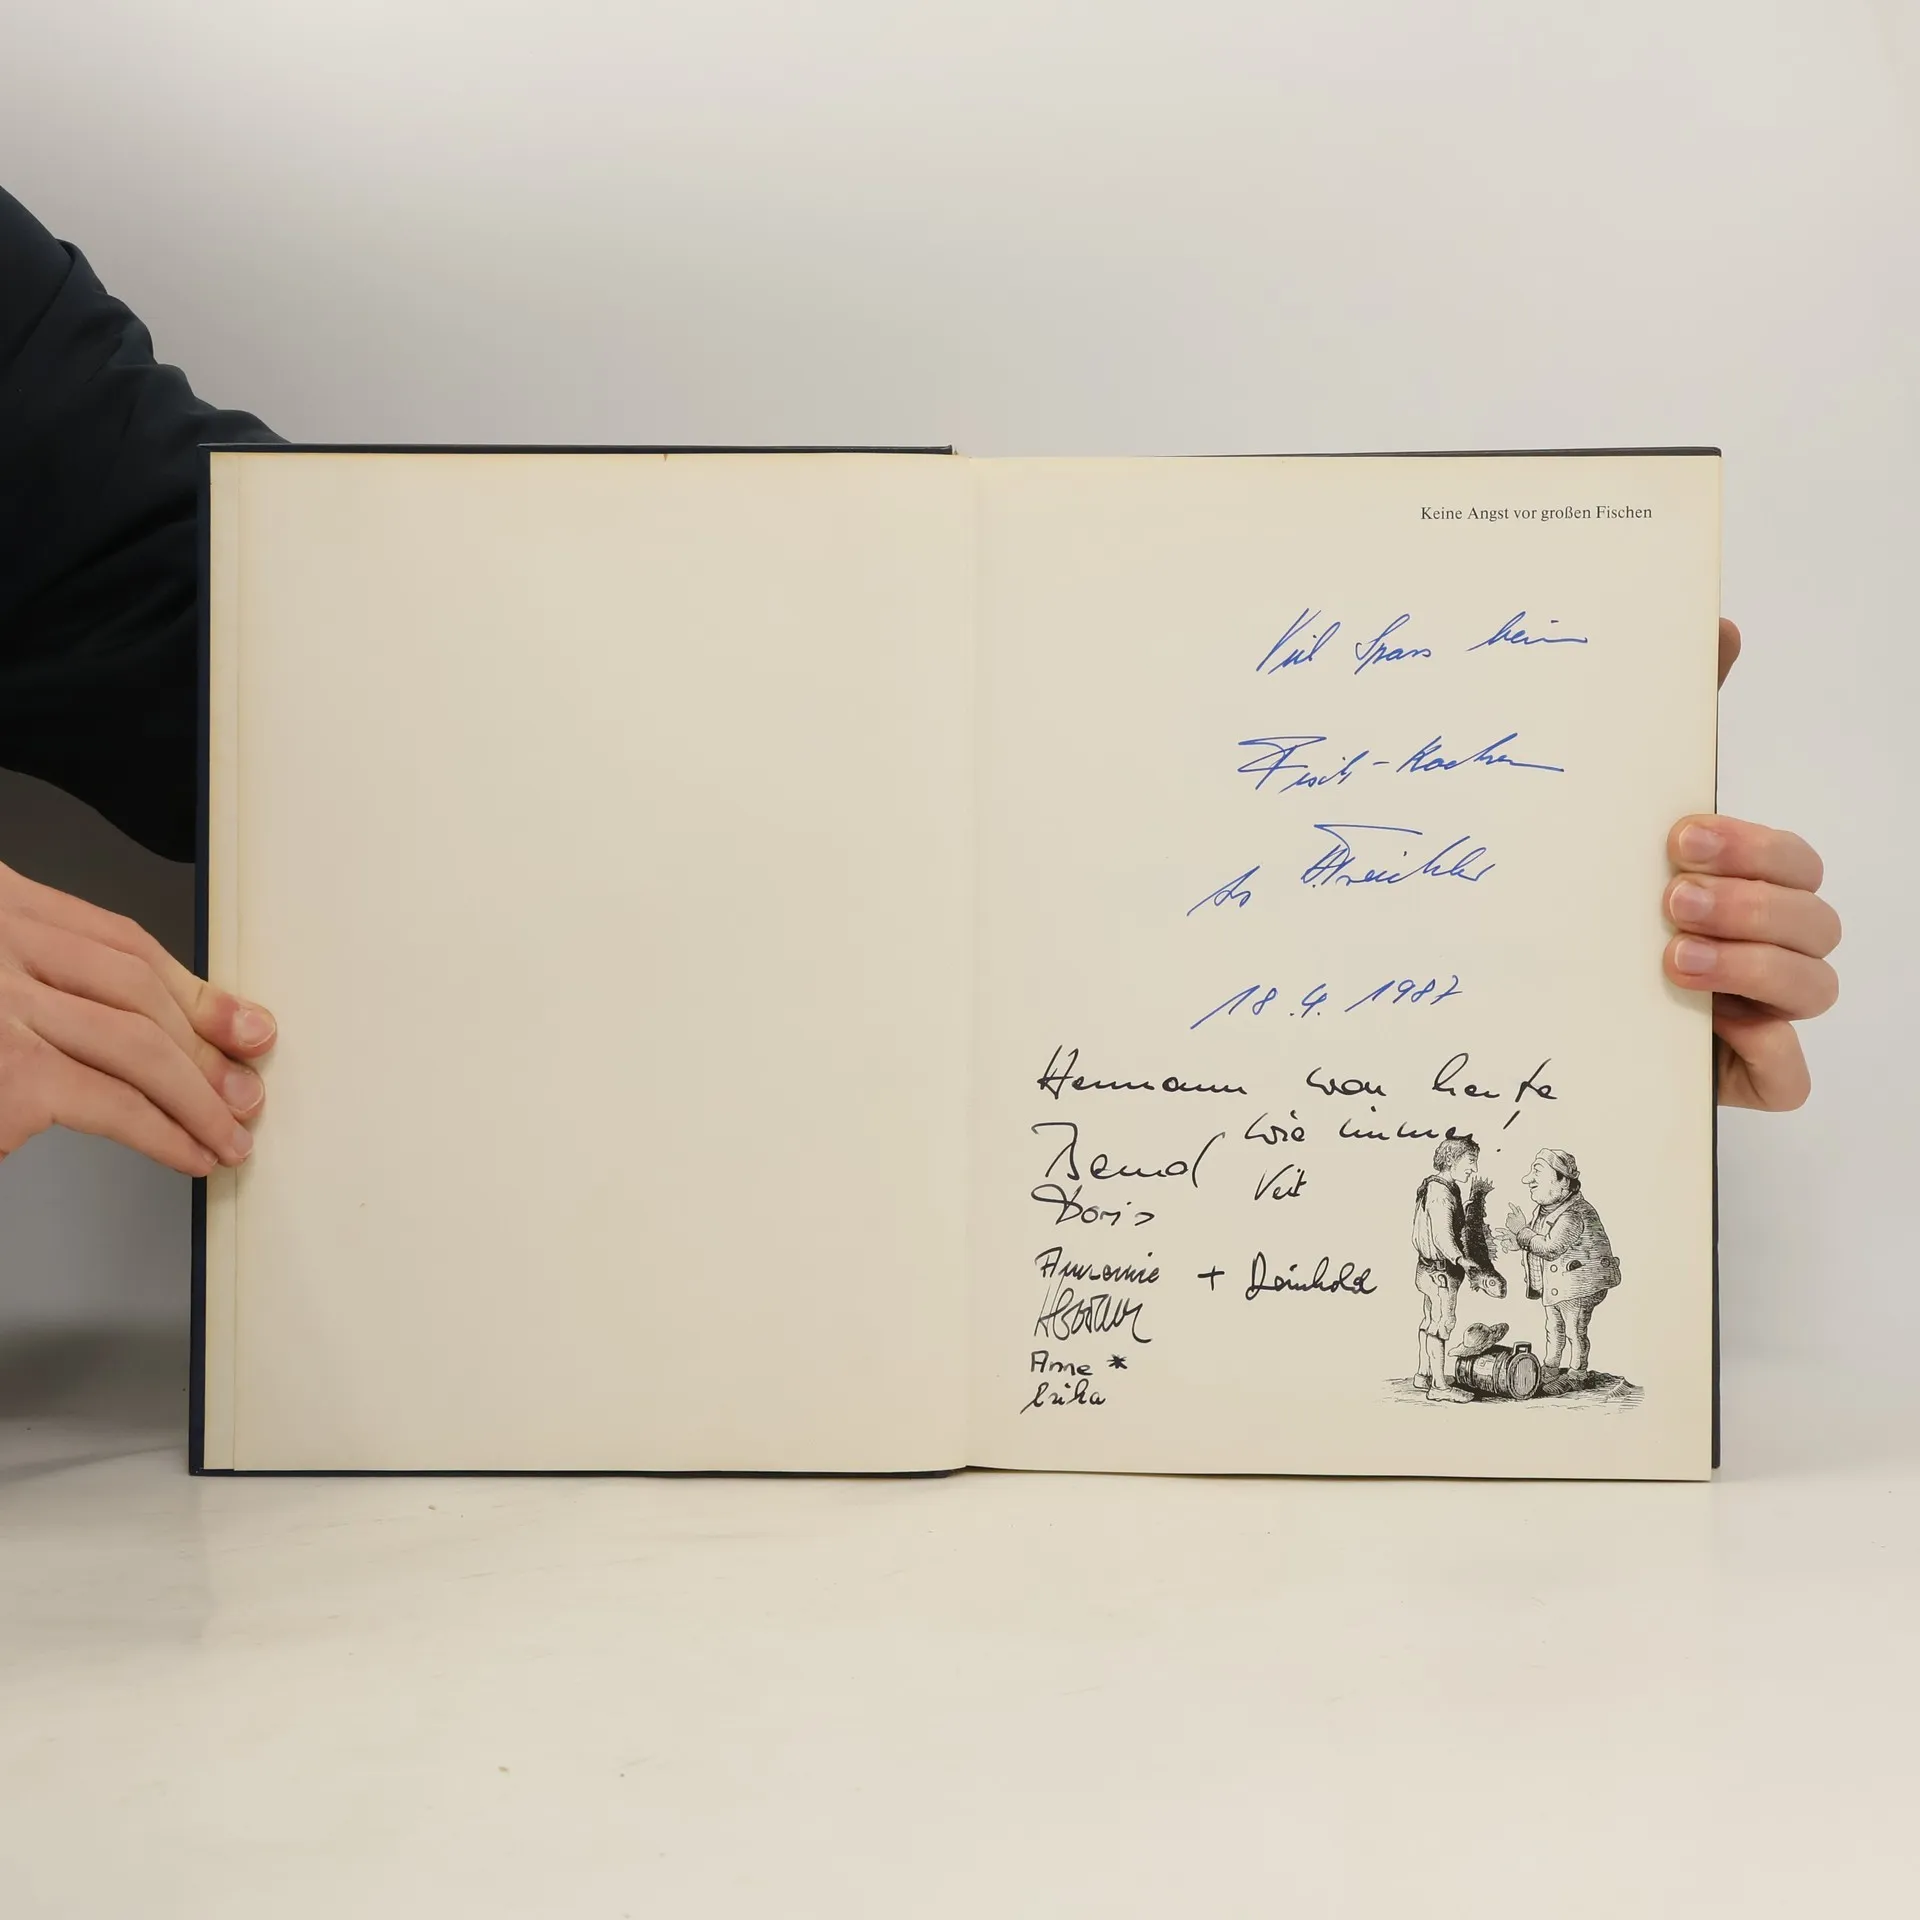 Keine Angst vor großen Fischen
Viel Spass beim
Fisch-Kochen
18.4.1987
Hermann war heute
wie immer!
Bernd
Veit
Doris
Annemie + Reinhold
Arne *
Erika